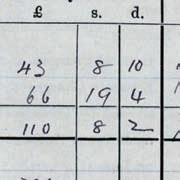 £ s. d.
43 8 10
66 19 4
110 8 2